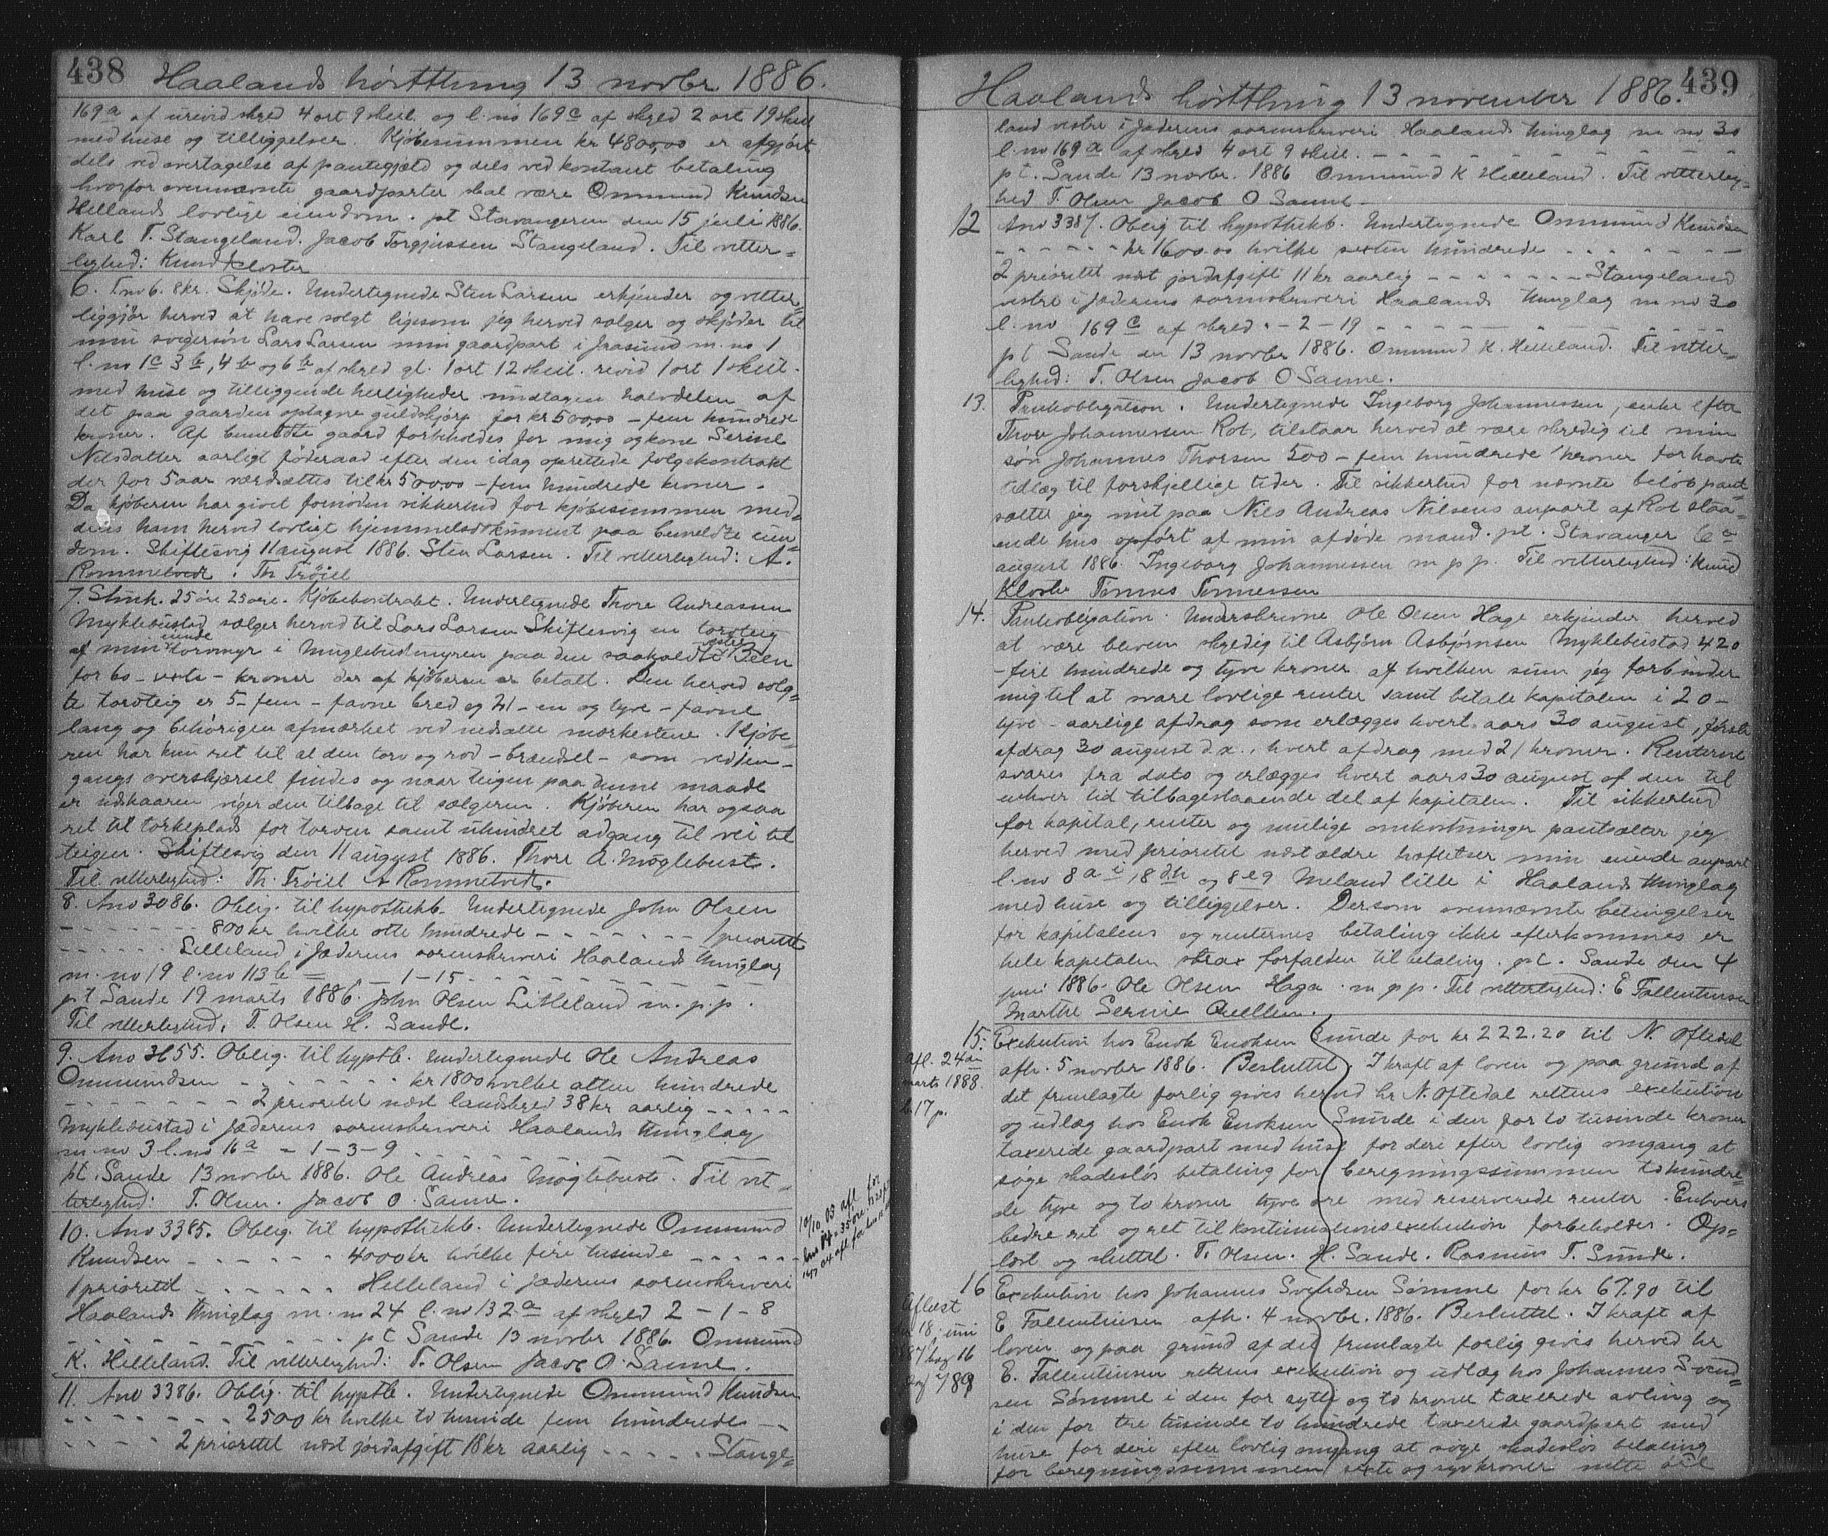 438 Haalands høstthing 13 novbr 1886.
169a af urevid skyld 4 ort 9 skill og l. no 169c af skyld 2 ort 19 skill
med huse og tilliggelser. Kjøbesummen kr 4800,00 er afgjørt
dels ved overtagelse af pantegjæld og dels ved kontant betaling
hvorfor ovennævnte gaardparter skal være Ommund Knudsen
Hellands lovlige eiendom. pt Stavangeren den 15 juli 1886.
Karl T. Stangeland. Jacob Torgjussen Stangeland. Til vitter-
lighed: Knud Kloster
6. Tno 6. 8 kr. Skjøde. Undertegnede Sten Larsen erkjender og vitter
liggjør herved at have solgt ligesom jeg herved sælger og skjøder til
min svigersøn Lars Larsen min gaardpart i Grasund m. no 1
l. no 1c 3b, 4b og 6b af skyld gl. 1 ort 12 skill. revid 1 ort 1 skill.
med huse og tilliggende herligheder undtagen halvdelen af
det paa gaarden optagne guldskjørp for kr 500,00 - fem hundrede
kroner. Af bemeldte gaard forbeholdes for mig og kone Serine
Nilsdatter aarligt føderaad efter den idag oprettede folgekontrakt
der for 5 aar værdsættes til kr 500,00 - fem hundrede kroner.
Da kjøberen har givet fornøden sikkerhed for kjøbesummen med-
deles ham herved lovligt hjemmelsdokument paa bemeldte eien
dom. Skiftesvig 11 august 1886. Sten Larsen. Til vitterlighed: A.
Rommetvedt. Th Trøiel
7. Stmk. 25 øre 25 øre. Kjøbekontrakt. Undertegnede Thore Andreassen
Myklebustad sælger herved til Lars Larsen Skiftesvig en torvteig
af min eiende torvmyr i Muglebustmyren paa den saakaldte Teen
for 60 - - kroner der af kjøberen er betalt. Den herved solg-
te torvteig er 5 - fem - favne bred og 21 - en og tyve - favne
lang og behørigen afmærket ved nedsatte mærkestene. Kjøbe-
ren har kun ret til al den torv og rod - brændsel - som ved en
gangs overskjærsel findes og naar teigen paa denne maade
er udskaaren viger den tilbage til sælgeren. Kjøberen har ogsaa
ret til tørkeplads for torven samt uhindret adgang til vei til
teigen. Skiftesvig den 11 august 1886. Thore A. Møglebust.
Til vitterlighed: Th. Trøiel A Rommetvedt.
8. Ano 3086. Oblig. til hypothekb. Undertegnede John Olsen
- - - - 800 kr hvilke otte hundrede - - - - 1 prioritet
- - - - Lilleland i Jæderens sorenskriveri Haalands thinglag
m. no 19 l. no 113b = - 1 - 15 - - - -
pt Sande 19 marts 1886. John Olsen Litleland m. p. p.
Til vitterlighed. T. Olsen H. Sande.
9. Ano 3655. Oblig. til hypthb. Undertegnede Ole Andreas
Ommundsen - - - - kr 1800 hvilke atten hundrede
- - - - 2 prioritet næst landskyld 38 kr aarlig - - - -
Myklebustad i Jæderens sorenskriveri Haalands thinglag
m. no 3 l. no 16a - 1 - 3 - 9 - - - -
pt. Sande 13 novbr 1886. Ole Andreas Møglebust. Til vit-
terlighed: T. Olsen. Jacob O. Sanne.
10. Ano 3385. Oblig. til hypothekb. Undertegnede Ommund
Knudsen - - - - 4000 kr hvilke fire tusinde - - - -
1 prioritet - - - - Helleland i Jæderens sorenskriveri
Haalands thinglag m. no 24 l. no 132a af skyld 2 - 1 - 8
- - - - pt Sande 13 novbr 1886 Ommund
K. Helleland. Til vitterlighed: T. Olsen Jacob O. Sanne.
11. Ano 3386. Oblig. til hyptb. Undertegnede Ommund Knudsen
- - - - 2500 kr hvilke to tusinde fem hundrede - -
- - - - 2 prioritet næst jordafgift 18 kr aarlig - - - - Stange-
Haalands høstthing 13 november 1886. 439
land vestre i Jæderens sorenskriveri Haalands thinglag m no 30
l. no 169a af skyld 4 ort 9 skill. - - - -
pt. Sande 13 novbr. 1886 Ommund K Helleland. Til vitterlig-
hed T. Olsen Jacob O Sanne.
12 Ano 3387. Oblig til hypothekb. Undertegnede Ommund Knudsen
- - - - kr 1600.00 hvilke sexten hundrede - - - -
2 prioritet næst jordafgift 11 kr aarlig - - - - Stangeland
vestre i Jæderens sorenskriveri Haalands thinglag m no 30
l. no 169c af skyld. - 2 - 19 - - - -
pt Sande den 13 novbr 1886. Ommund K. Helleland. Til vitter-
lighed: T. Olsen Jacob O Sanne.
13. Panteobligation. Undertegnede Ingeborg Johannessen, enke efter
Thore Johannessen Rot, tilstaar herved at være skyldig til min
søn Johannes Thorsen 500 - fem hundrede kroner for havte
udlæg til forskjellige tider. Til sikkerhed for nævnte beløb pant-
sætter jeg mit paa Nils Andreas Nilsens anpart af Rot staa-
ende hus opført af min afdøde mand. pt. Stavanger 6te
august 1886. Ingeborg Johannessen m. p. p. Til vitterlighed: Knud
Kloster Tønnes Tønnessen
14. Panteobligation. Underskrevne Ole Olsen Hage erkjender herved
at være bleven skyldig til Asbjørn Asbjørnsen Myklebustad 420
- fire hundrede og tyve kroner af hvilken sum jeg forbinder
mig til at svare lovlige renter samt betale kapitalen i 20 -
tyve - aarlige afdrag som erlægges hvert aars 30 august, første
afdrag 30 august d. a., hvert afdrag med 21 kroner. Renterne
svares fra dato og erlægges hvert aars 30 august af den til
enhver tid tilbagestaaende del af kapitalen. Til sikkerhed
for kapital, renter og mulige omkostninger pantsætter jeg
herved med prioritet næst ældre hæftelser min eiende anpart
l. no 8a i, 8dh og 8e9 Meland lille i Haalands thinglag
med huse og tilliggelser. Dersom ovennævnte betingelser
for kapitalens og renternes betaling ikke efterkommes er
hele kapitalen strax forfalden til betaling. pt. Sande den 4
juni 1886. Ole Olsen Haga. m. p. p. Til vitterlighed: E Fallentinsen
Marthe Serine Quellen.
15. Exekution hos Enok Enoksen Sunde for kr 222.20 til N. Oftedal
afh. 5 novbr 1886. Besluttet. I kraft af loven og paa grund af
det fremlagte forlig gives herved hr N. Oftedal rettens exekution
og udlæg hos Enok Enoksen Sunde i den for to tusinde kroner
taxerede gaardpart med huse for deri efter lovlig omgang at
søge skadesløs betaling for beregningssummen to hundre-
de tyve og to kroner tyve øre med reserverede renter. Enhvers
bedre ret og ret til kontinuationsexekution forbeholdes. Op-
læst og sluttet. T. Olsen. H. Sande. Rasmus T. Sunde.
afl. 24de
marts 1888.
b. 17 p.
16 Exekution hos Johannes Svendsen Sømme for kr 67.90 til
E Fallentinsen afh. 4 novbr. 1886. Besluttet. I kraft af
loven og paa grund af det fremlagte forlig gives herved hr
E. Fallentinsen rettens exekution og udlæg hos Johannes Svend-
sen Sømme i den for sytti og to krone taxerede avling og
i den for tre tusinde to hundrede taxerede gaardpart med
huse for deri efter lovlig omgang at søge skadesløs betaling
for beregningssummen sexti og syv kroner nitti øre
Aflæst
18. juni